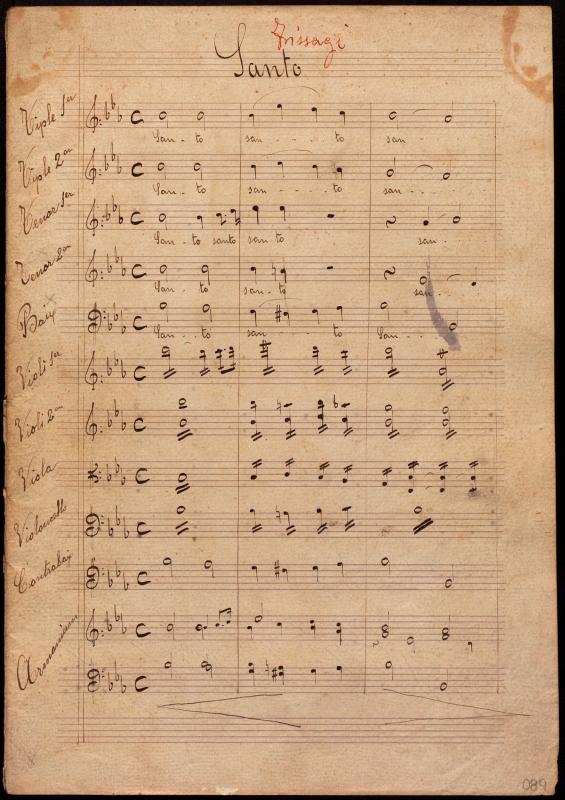 Trissagi
Santo
Tiple 1er
San - to san - - to san - -
Tiple 2on
San - to san - - - to san - - -
Tenor 1er
San - to santo santo san -
Tenor 2on
San - to san - to san - -
Baix
San - to san - - to San - - -
Violi 1er
Violi 2on
Viola
Violoncello
Contrabaix
Armonium
089